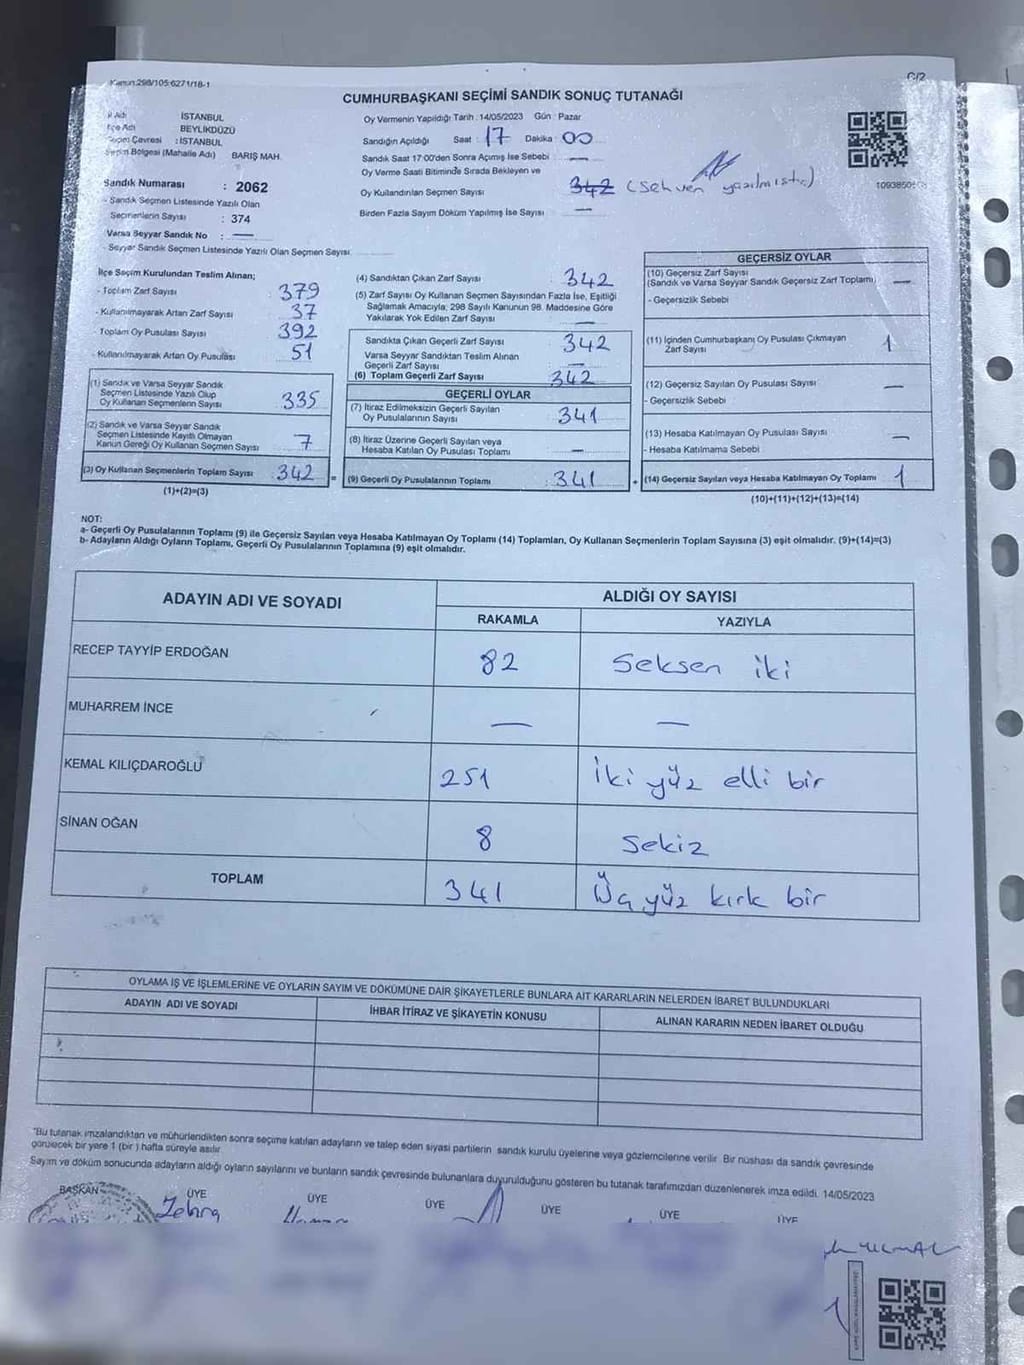 Kanun:298/105:6271/18-1
C/2
CUMHURBAŞKANI SEÇİMİ SANDIK SONUÇ TUTANAĞI
İl Adı İSTANBUL
İlçe Adı BEYLİKDÜZÜ
Seçim Çevresi : İSTANBUL
Seçim Bölgesi (Mahalle Adı) BARIŞ MAH.
Sandık Numarası : 2062
- Sandık Seçmen Listesinde Yazılı Olan
Seçmenlerin Sayısı : 374
Varsa Seyyar Sandık No : —
- Seyyar Sandık Seçmen Listesinde Yazılı Olan Seçmen Sayısı
Oy Vermenin Yapıldığı Tarih : 14/05/2023 Gün : Pazar
Sandığın Açıldığı Saat : 17 Dakika : 00
Sandık Saat 17:00'den Sonra Açımış İse Sebebi —
Oy Verme Saati Bitiminde Sırada Bekleyen ve
Oy Kullandırılan Seçmen Sayısı 342 (Sehven yazılmıştır)
Birden Fazla Sayım Döküm Yapılmış İse Sayısı —
İlçe Seçim Kurulundan Teslim Alınan;
- Toplam Zarf Sayısı 379
- Kullanılmayarak Artan Zarf Sayısı 37
- Toplam Oy Pusulası Sayısı 392
- Kullanılmayarak Artan Oy Pusulası 51
(1) Sandık ve Varsa Seyyar Sandık
Seçmen Listesinde Yazılı Olup
Oy Kullanan Seçmenlerin Sayısı 335
(2) Sandık ve Varsa Seyyar Sandık
Seçmen Listesinde Kayıtlı Olmayan
Kanun Gereği Oy Kullanan Seçmen Sayısı 7
(3) Oy Kullanan Seçmenlerin Toplam Sayısı 342 =
(1)+(2)=(3)
(4) Sandıktan Çıkan Zarf Sayısı 342
(5) Zarf Sayısı Oy Kullanan Seçmen Sayısından Fazla İse, Eşitliği
Sağlamak Amacıyla; 298 Sayılı Kanunun 98. Maddesine Göre
Yakılarak Yok Edilen Zarf Sayısı —
Sandıkta Çıkan Geçerli Zarf Sayısı 342
Varsa Seyyar Sandıktan Teslim Alınan
Geçerli Zarf Sayısı
(6) Toplam Geçerli Zarf Sayısı 342
GEÇERLİ OYLAR
(7) İtiraz Edilmeksizin Geçerli Sayılan
Oy Pusulalarının Sayısı 341
(8) İtiraz Üzerine Geçerli Sayılan veya
Hesaba Katılan Oy Pusulası Toplamı —
(9) Geçerli Oy Pusulalarının Toplamı : 341 +
GEÇERSİZ OYLAR
(10) Geçersiz Zarf Sayısı
(Sandık ve Varsa Seyyar Sandık Geçersiz Zarf Toplamı) —
- Geçersizlik Sebebi
(11) İçinden Cumhurbaşkanı Oy Pusulası Çıkmayan
Zarf Sayısı 1
(12) Geçersiz Sayılan Oy Pusulası Sayısı —
- Geçersizlik Sebebi
(13) Hesaba Katılmayan Oy Pusulası Sayısı —
- Hesaba Katılmama Sebebi
(14) Geçersiz Sayılan veya Hesaba Katılmayan Oy Toplamı 1
(10)+(11)+(12)+(13)=(14)
NOT:
a- Geçerli Oy Pusulalarının Toplamı (9) ile Geçersiz Sayılan veya Hesaba Katılmayan Oy Toplamı (14) Toplamları, Oy Kullanan Seçmenlerin Toplam Sayısına (3) eşit olmalıdır. (9)+(14)=(3)
b- Adayların Aldığı Oyların Toplamı, Geçerli Oy Pusulalarının Toplamına (9) eşit olmalıdır.
ADAYIN ADI VE SOYADI ALDIĞI OY SAYISI
RAKAMLA YAZIYLA
RECEP TAYYİP ERDOĞAN 82 Seksen iki
MUHARREM İNCE — —
KEMAL KILIÇDAROĞLU 251 İki yüz elli bir
SİNAN OĞAN 8 Sekiz
TOPLAM 341 Üç yüz kırk bir
OYLAMA İŞ VE İŞLEMLERİNE VE OYLARIN SAYIM VE DÖKÜMÜNE DAİR ŞİKAYETLERLE BUNLARA AİT KARARLARIN NELERDEN İBARET BULUNDUKLARI
ADAYIN ADI VE SOYADI İHBAR İTİRAZ VE ŞİKAYETİN KONUSU ALINAN KARARIN NEDEN İBARET OLDUĞU
"Bu tutanak imzalandıktan ve mühürlendikten sonra seçime katılan adayların ve talep eden siyasi partilerin sandık kurulu üyelerine veya gözlemcilerine verilir. Bir nüshası da sandık çevresinde
görülecek bir yere 1 (bir ) hafta süreyle asılır.
Sayım ve döküm sonucunda adayların aldığı oyların sayılarını ve bunların sandık çevresinde bulunanlara duyurulduğunu gösteren bu tutanak tarafımızdan düzenlenerek imza edildi. 14/05/2023
BAŞKAN ÜYE ÜYE ÜYE ÜYE ÜYE ÜYE
Zehra